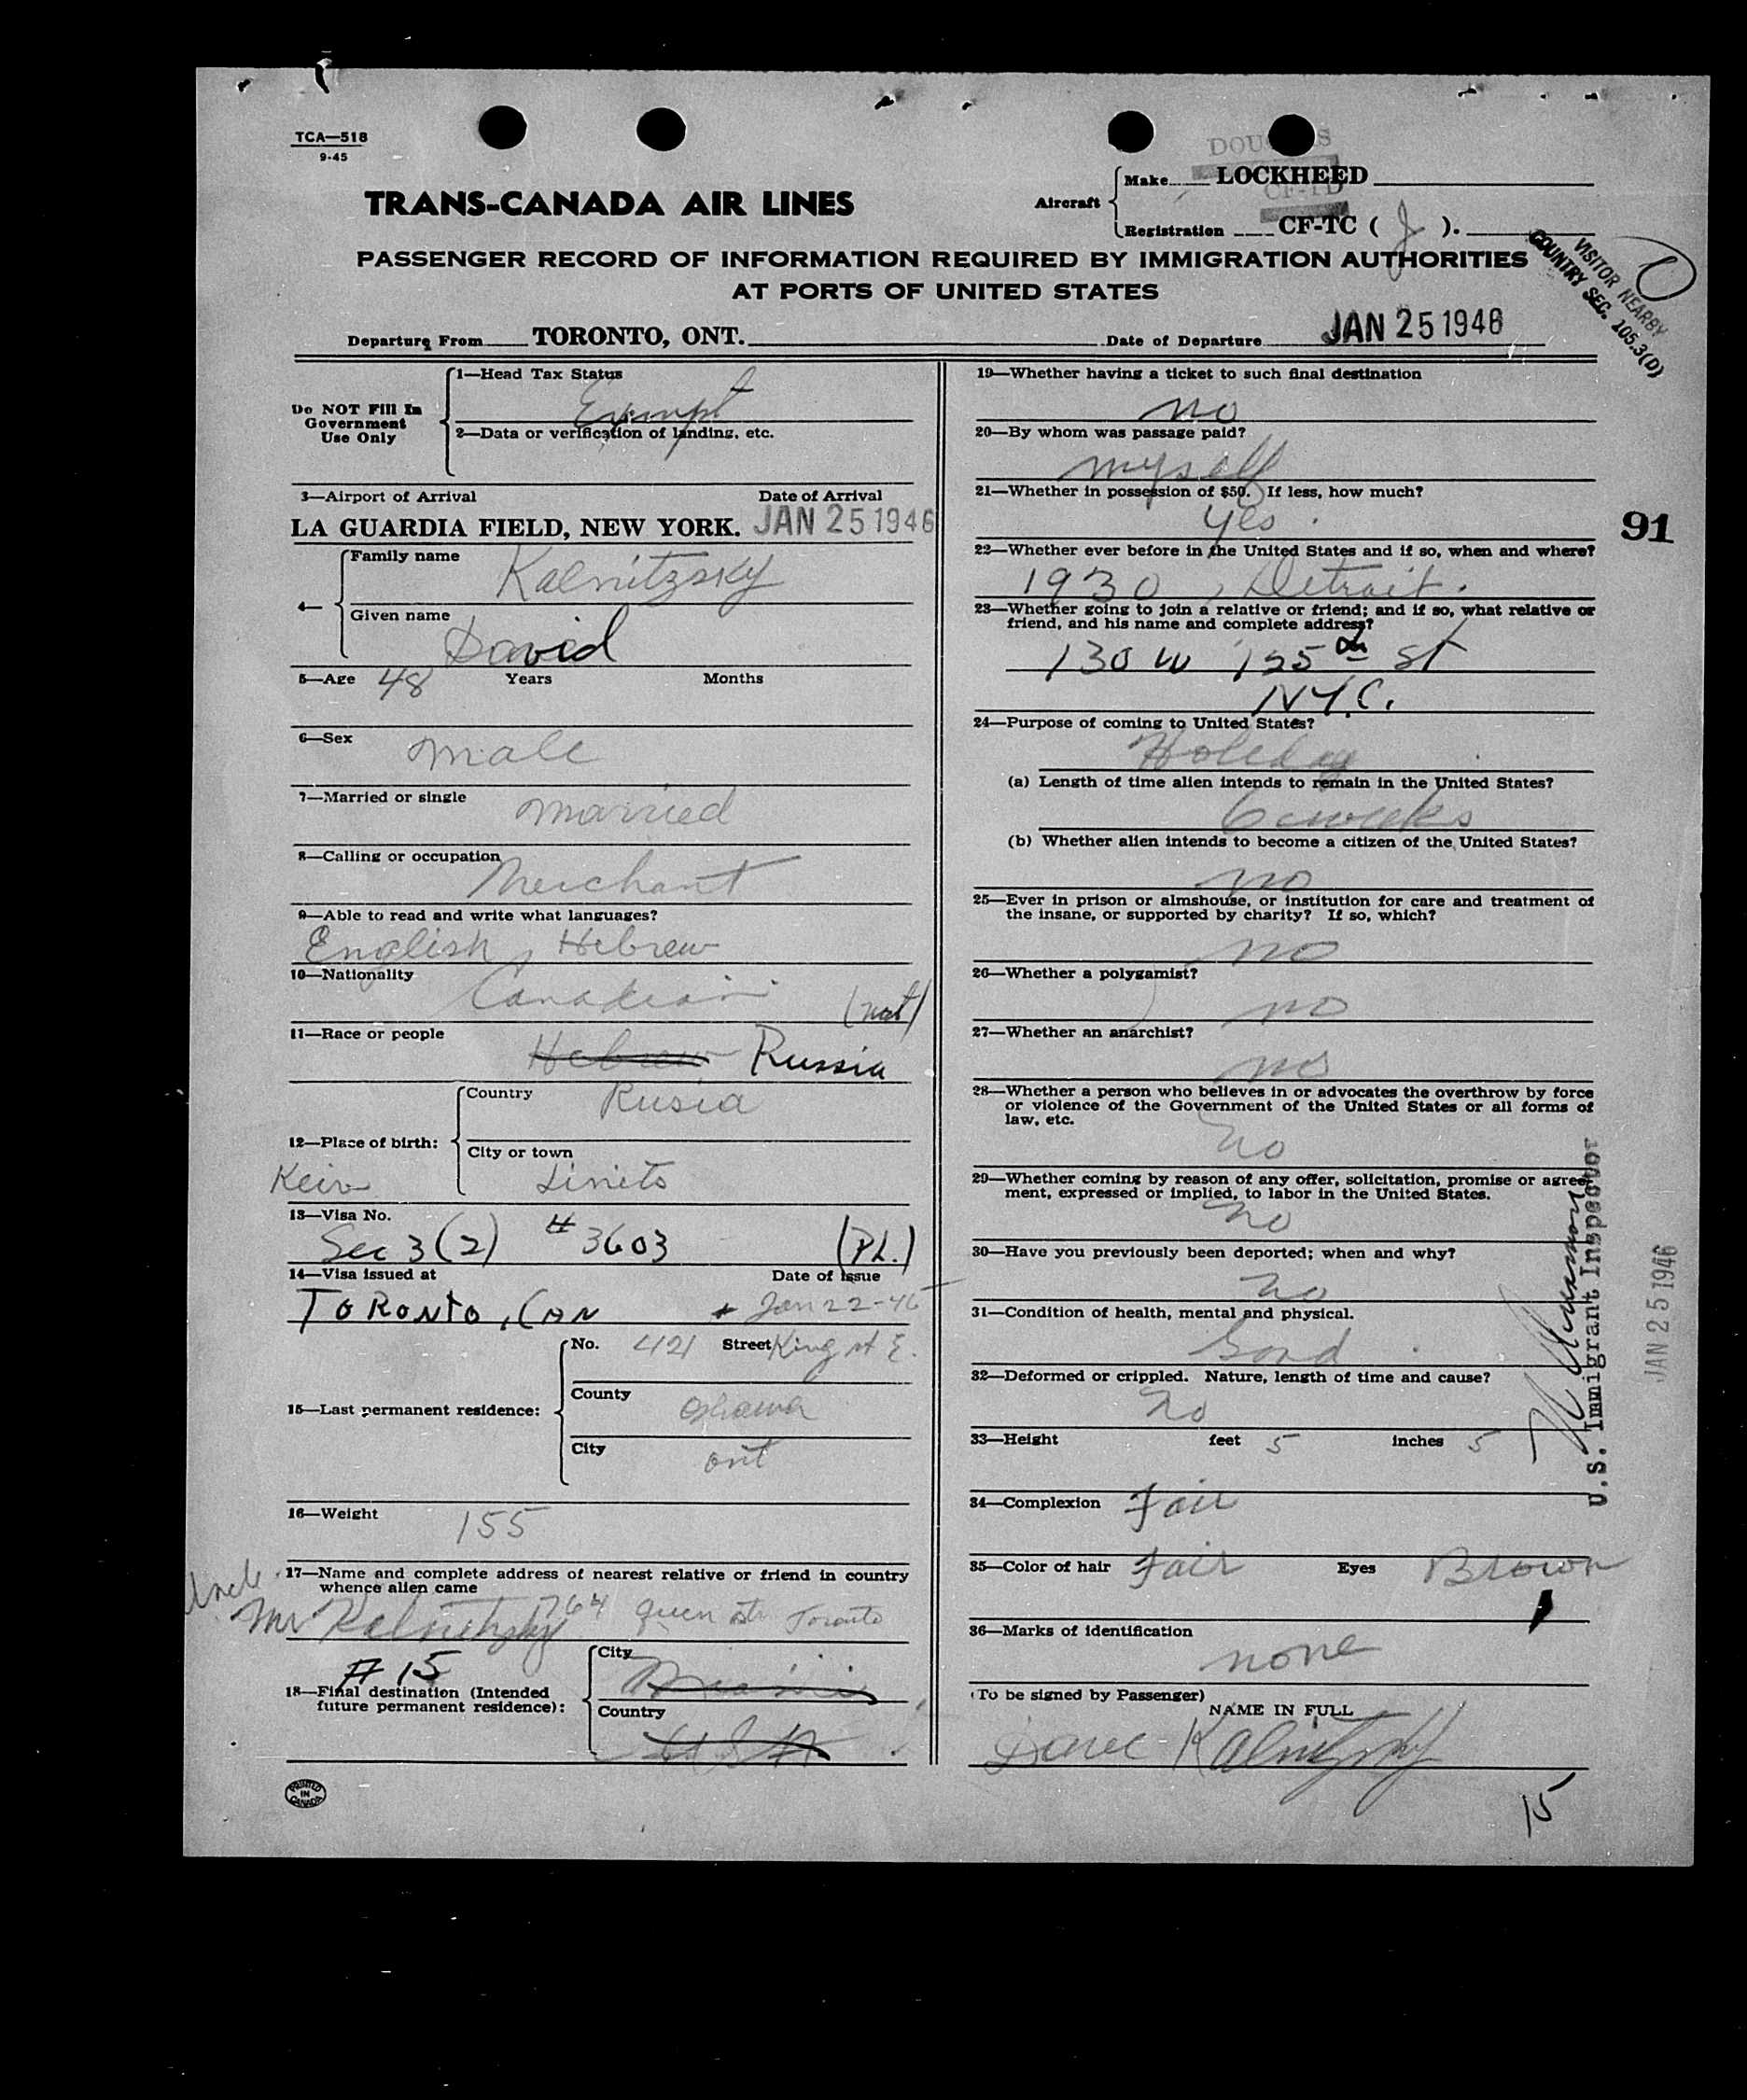 TCA—518
9-45
DOUGLAS
Make LOCKHEED
TRANS-CANADA AIR LINES
Aircraft
CF-T
Registration CF-TC ( J ).
PASSENGER RECORD OF INFORMATION REQUIRED BY IMMIGRATION AUTHORITIES
AT PORTS OF UNITED STATES
VISITOR NEARBY
COUNTRY SEC. 105.3(D)
Departure From TORONTO, ONT. Date of Departure JAN 25 1946
Do NOT Fill In
Government
Use Only
1—Head Tax Status
Exempt
2—Data or verification of landing, etc.
3—Airport of Arrival Date of Arrival
LA GUARDIA FIELD, NEW YORK. JAN 25 1946
4— Family name Kalnitzsky
Given name David
5—Age 48 Years Months
6—Sex male
7—Married or single married
8—Calling or occupation
Merchant
9—Able to read and write what languages?
English, Hebrew
10—Nationality
Canadian (nat)
11—Race or people
Hebrew Russia
12—Place of birth:
Country Rusia
City or town
Keiv Linits
13—Visa No.
Sec 3(2) # 3603 (P.L.)
14—Visa issued at Date of Issue
TORONTO, CAN Jan 22-46
15—Last permanent residence:
No. 421 Street King st E.
County Oshawa
City ont
16—Weight 155
17—Name and complete address of nearest relative or friend in country
whence alien came
Uncle
Mr Kalnitzsky 764 queen str Toronto
# 15
18—Final destination (Intended
future permanent residence):
City
Miami
Country
USA
PRINTED
IN
CANADA
19—Whether having a ticket to such final destination
no
20—By whom was passage paid?
myself
21—Whether in possession of $50. If less, how much?
yes.
91
22—Whether ever before in the United States and if so, when and where?
1930, Detroit.
23—Whether going to join a relative or friend; and if so, what relative or
friend, and his name and complete address?
130 W 125th St
N.Y.C.
24—Purpose of coming to United States?
Holiday
(a) Length of time alien intends to remain in the United States?
6 weeks
(b) Whether alien intends to become a citizen of the United States?
no
25—Ever in prison or almshouse, or institution for care and treatment of
the insane, or supported by charity? If so, which?
no
26—Whether a polygamist?
no
27—Whether an anarchist?
no
28—Whether a person who believes in or advocates the overthrow by force
or violence of the Government of the United States or all forms of
law, etc.
no
29—Whether coming by reason of any offer, solicitation, promise or agree-
ment, expressed or implied, to labor in the United States.
no
30—Have you previously been deported; when and why?
no
31—Condition of health, mental and physical.
Good
32—Deformed or crippled. Nature, length of time and cause?
no
33—Height feet 5 inches 5
34—Complexion Fair
35—Color of hair Fair Eyes Brown
36—Marks of identification
none
(To be signed by Passenger)
NAME IN FULL
Dave Kalnitzsky
15
U.S. Immigrant Inspector
JAN 25 1946